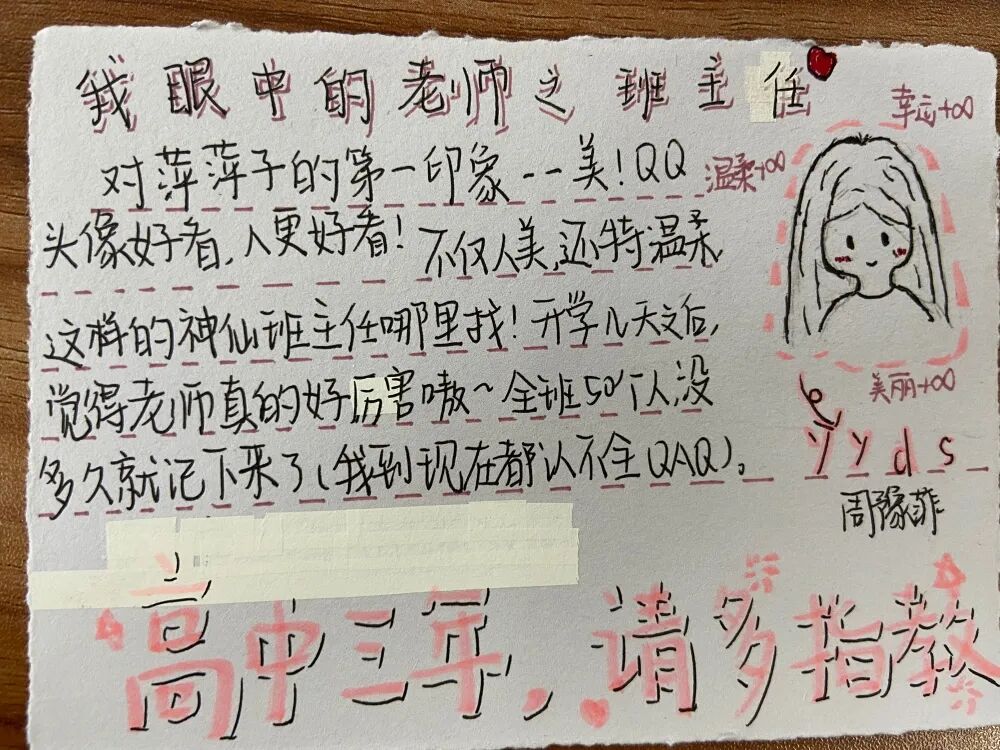 我眼中的老师之班主任
幸运+∞
温柔+∞
对萍萍子的第一印象--美!QQ
头像好看,人更好看!不仅人美,还特温柔,
这样的神仙班主任哪里找!开学几天文后,
觉得老师真的好厉害嗷~全班50个人没
多久就记下来了(我到现在都认不全QAQ)。
美丽+∞
yyds
周豫菲
高中三年,请多指教